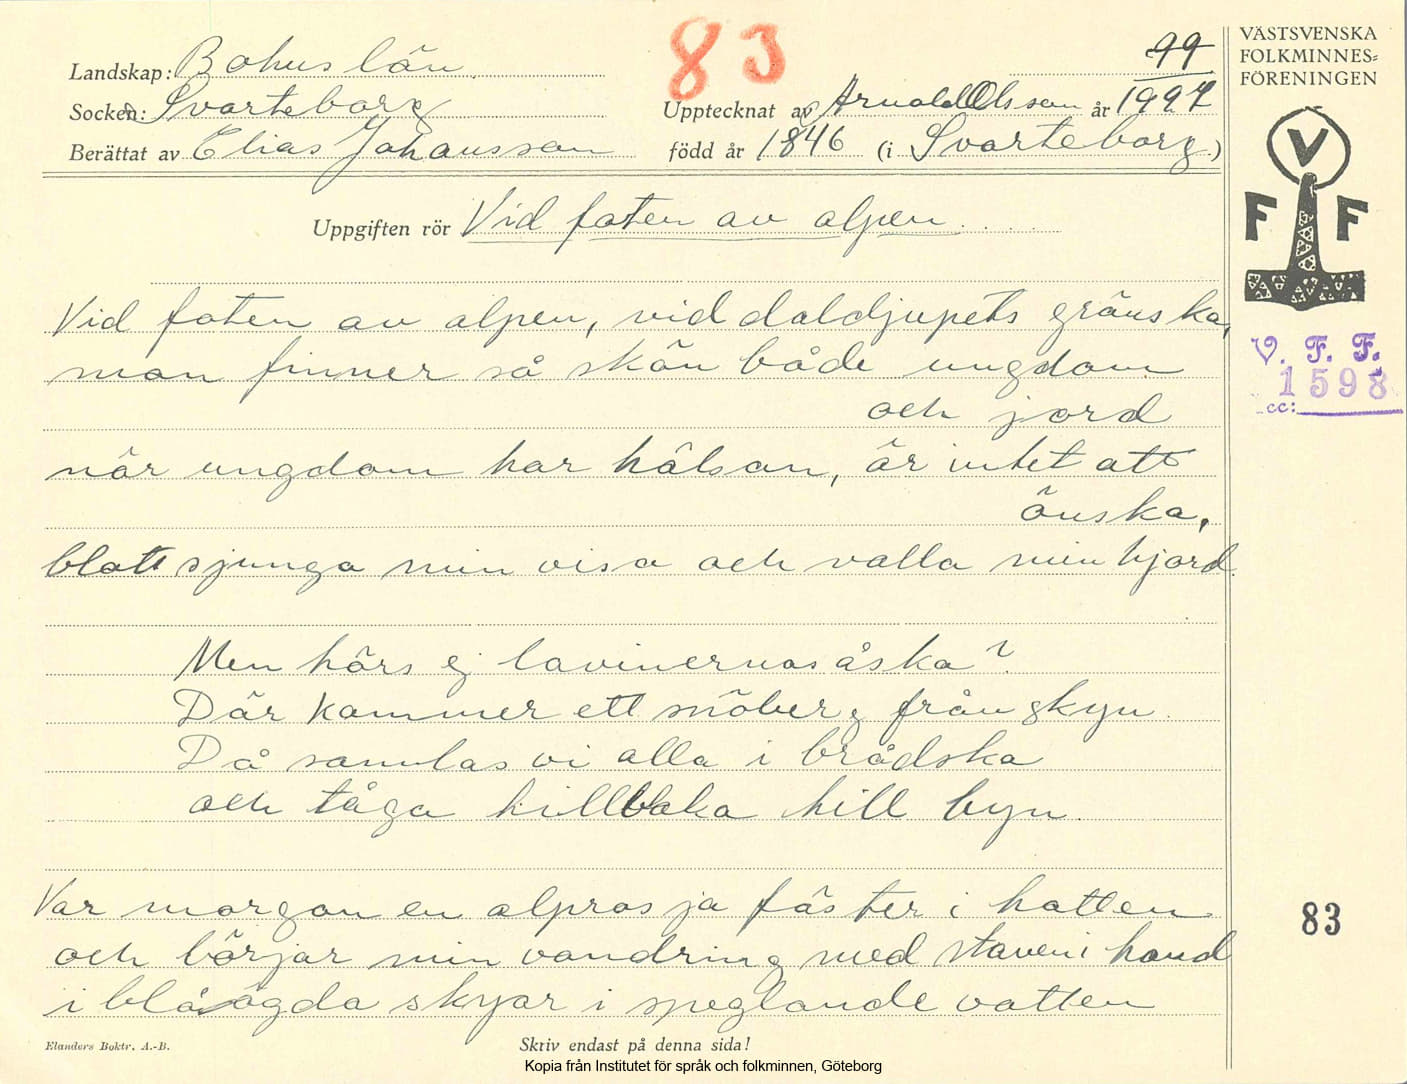 83
VÄSTSVENSKA
FOLKMINNES=
FÖRENINGEN
99
Landskap: Bohuslän
Socken: Svarteborg
Upptecknat av Arnold Olsson år 1927
Berättat av Elias Johansson
född år 1846 (i Svarteborg.)
V
F F
Uppgiften rör Vid foten av alpen
Vid foten av alpen, vid daldjupets gränska,
V. F. F.
man finner så skön både ungdom
1598
och jord
cc:
när ungdom har hälsan, är intet att
önska,
blott sjunga min visa och valla min hjord.
Men hörs ej lavinernas åska?
Där kommer ett snöberg från skyn.
Då samlas vi alla i brådska
och tåga tillbaka till byn.
Var morgon en alpros ja fäster i hatten
83
och börjar min vandring med staven i hand
i blåögda skyar i speglande vatten
Elanders Boktr. A.-B.
Skriv endast på denna sida!
Kopia från Institutet för språk och folkminnen, Göteborg